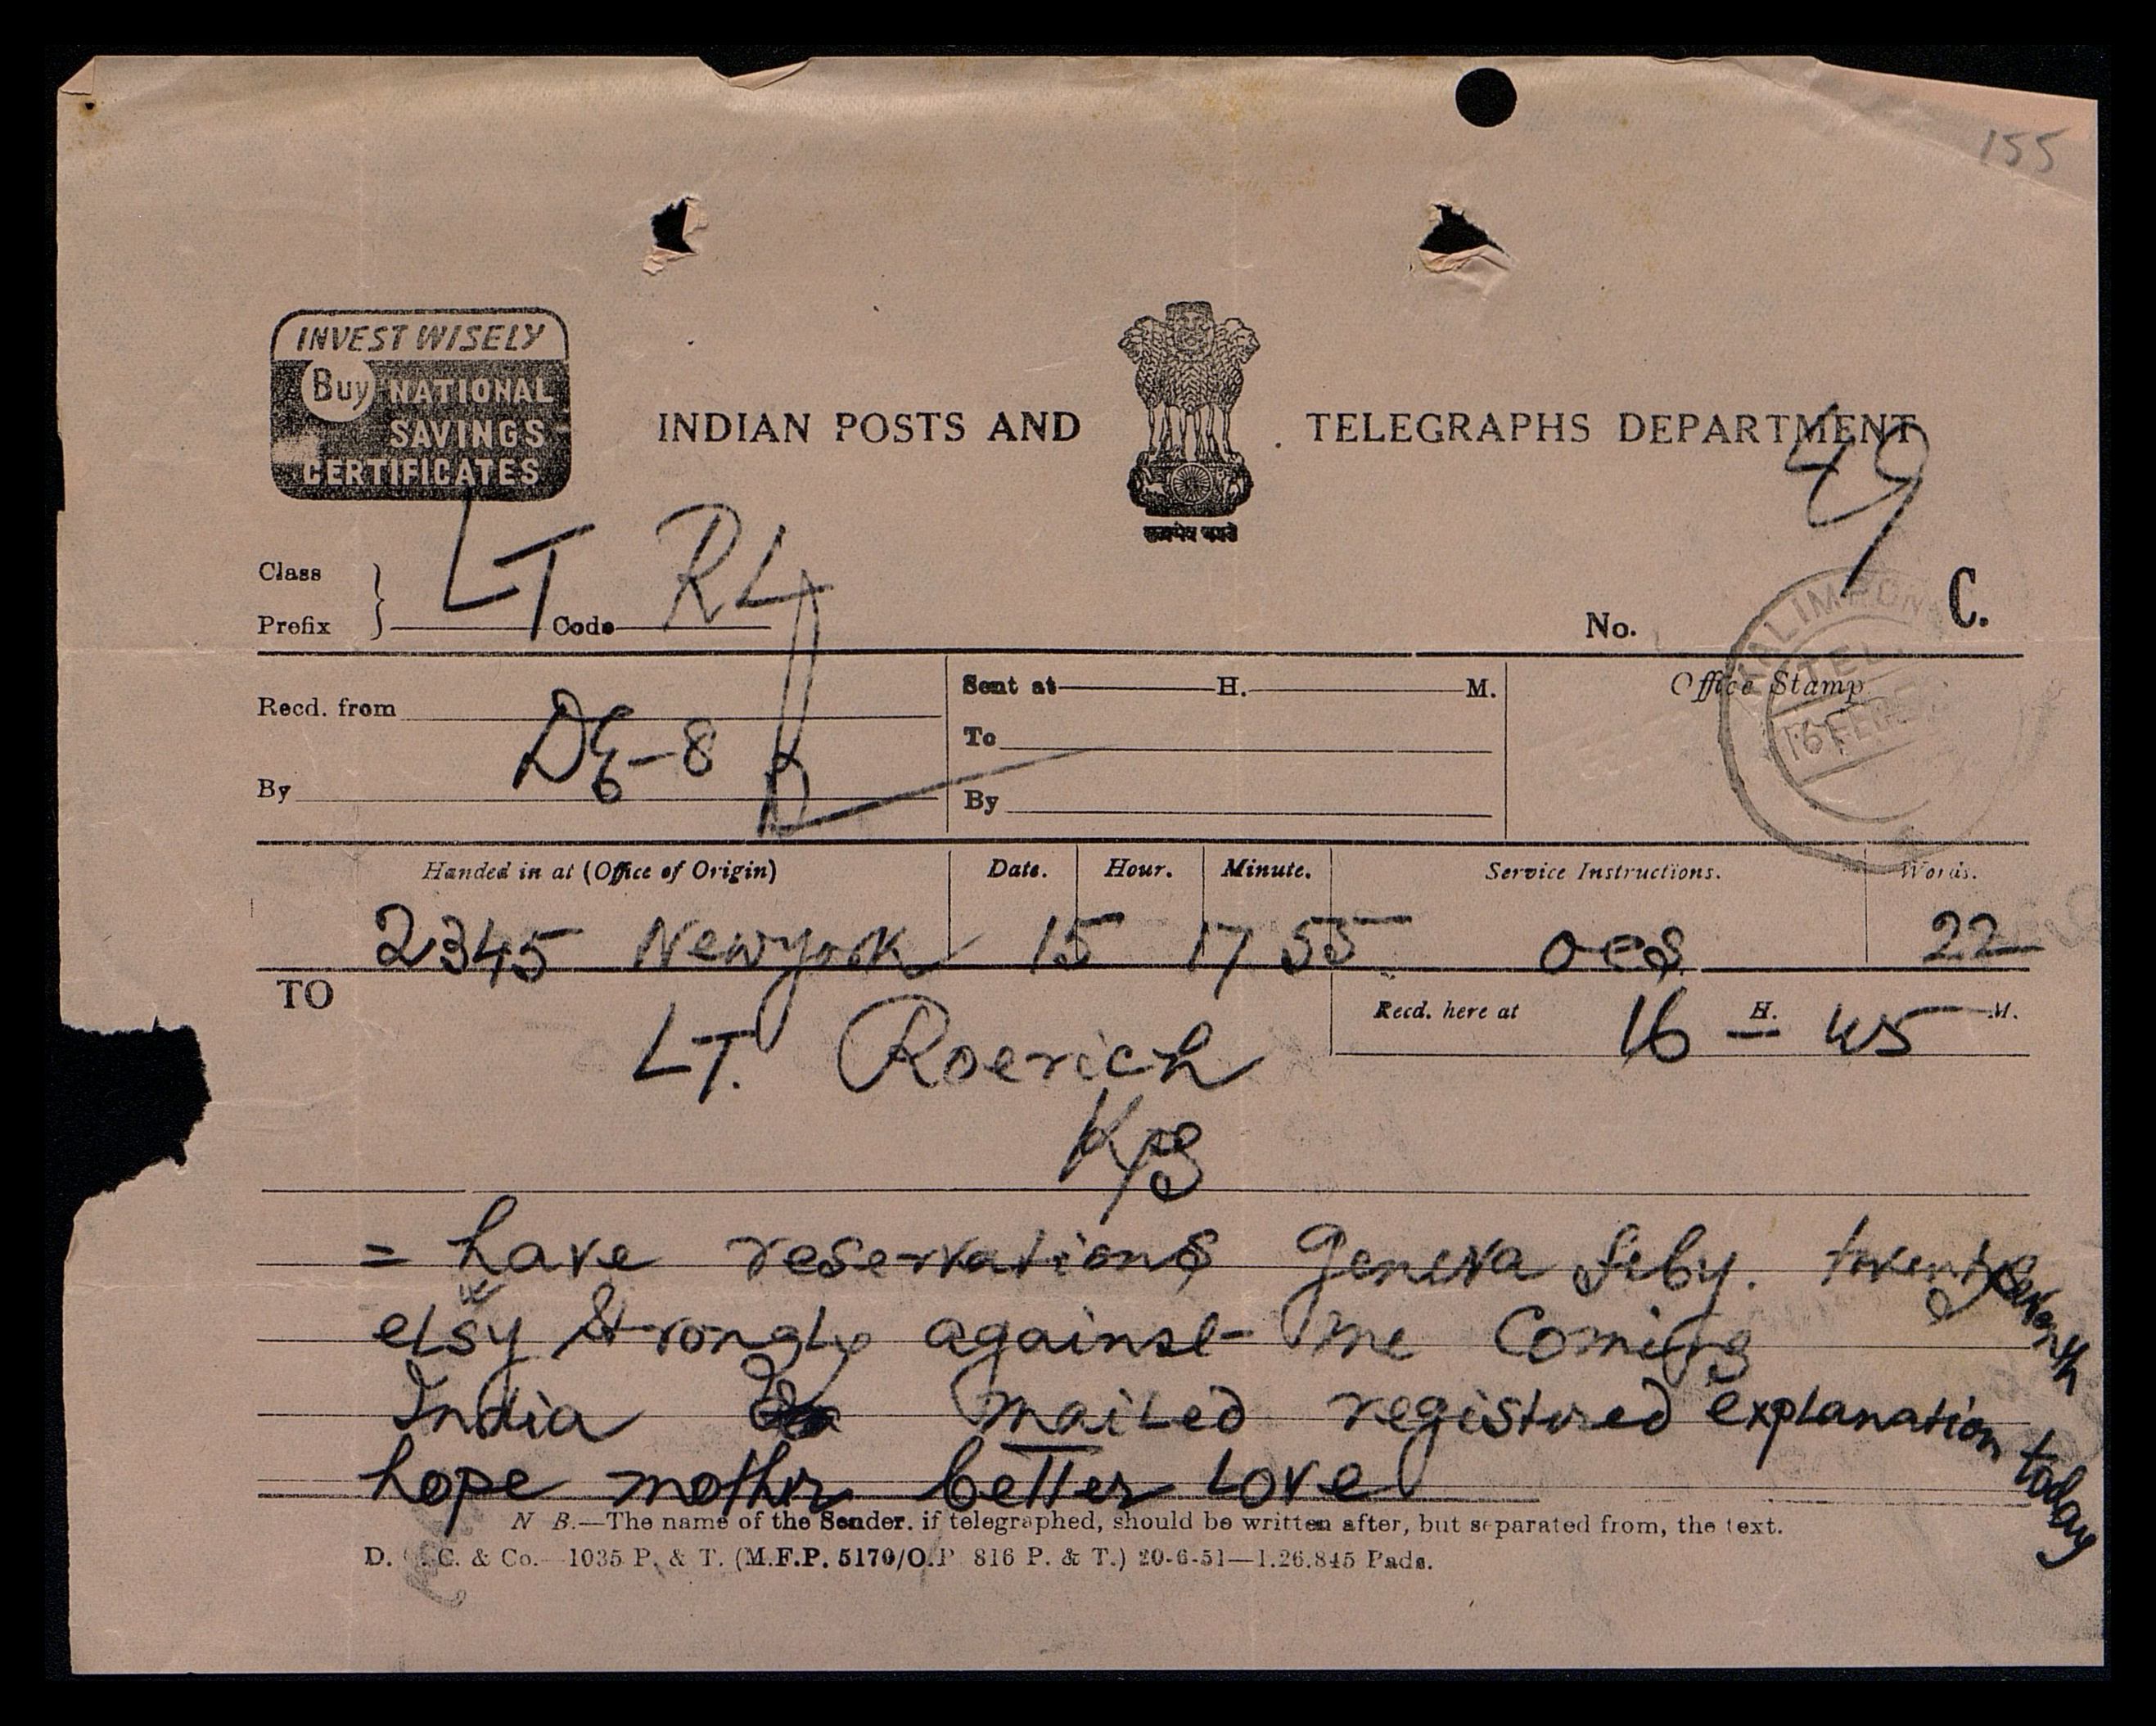 155
INVEST WISELY
Buy NATIONAL
SAVINGS
CERTIFICATES
INDIAN POSTS AND TELEGRAPHS DEPARTMENT
सत्यमेव जयते
49
Class
Prefix LT Code RL
No. C.
KALIMPONG
TEL.
16 FEB
Recd. from
DE-8
By
Sent at H. M.
To
By
Office Stamp
Handed in at (Office of Origin) Date. Hour. Minute. Service Instructions. Words.
2345 Newyork 15 17 55 22
TO
Recd. here at 16 H. - 45 M.
LT. Roerich
KPG
= have reservations Geneva feby. twenty seventh
elsy strongly against me Coming
India mailed registered explanation today
hope mother better love
N B.—The name of the Sender, if telegraphed, should be written after, but separated from, the text.
D. C. & Co.—1035 P. & T. (M.F.P. 5170/O.P 816 P. & T.) 20-6-51—1.26.845 Pads.